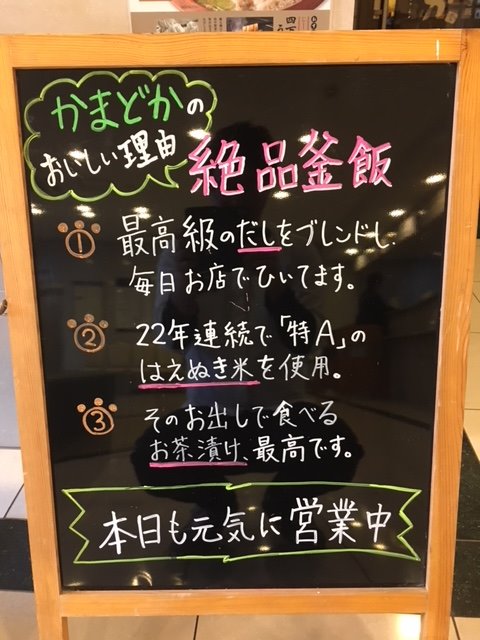 かまどかの
おいしい理由
絶品釜飯
① 最高級のだしをブレンドし、
毎日お店でひいてます。
② 22年連続で「特A」の
はえぬき米を使用。
③ そのお出しで食べる
お茶漬け、最高です。
本日も元気に営業中